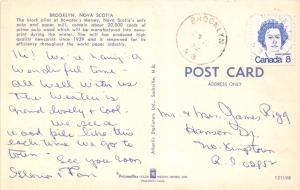 BROOKLYN, NOVA SCOTIA
The block piles at Bowater's Mersey, Nova Scotia's only
pulp and paper mill, contain about 20,000 cords of
prime pulp wood which will be manufactured into news-
print during the winter. The mill has produced high
quality newsprint since 1929 and is renowned for its
efficiency throughout the world paper industry.
Hi! We're having a
wonderful time -
all well with us.
The weather is
grand lovely & cool
We see a
wood pile like this
each time we go to
town - See you soon
Gloria & Tom
BROOKLYN
Canada 8
POST CARD
ADDRESS ONLY
Mr. & Mrs. James Rigg
Hanson Dr.
No. Kingstown
R.I. 02852
Atlantic Showcase Ltd., Sackville, N.B.
121198